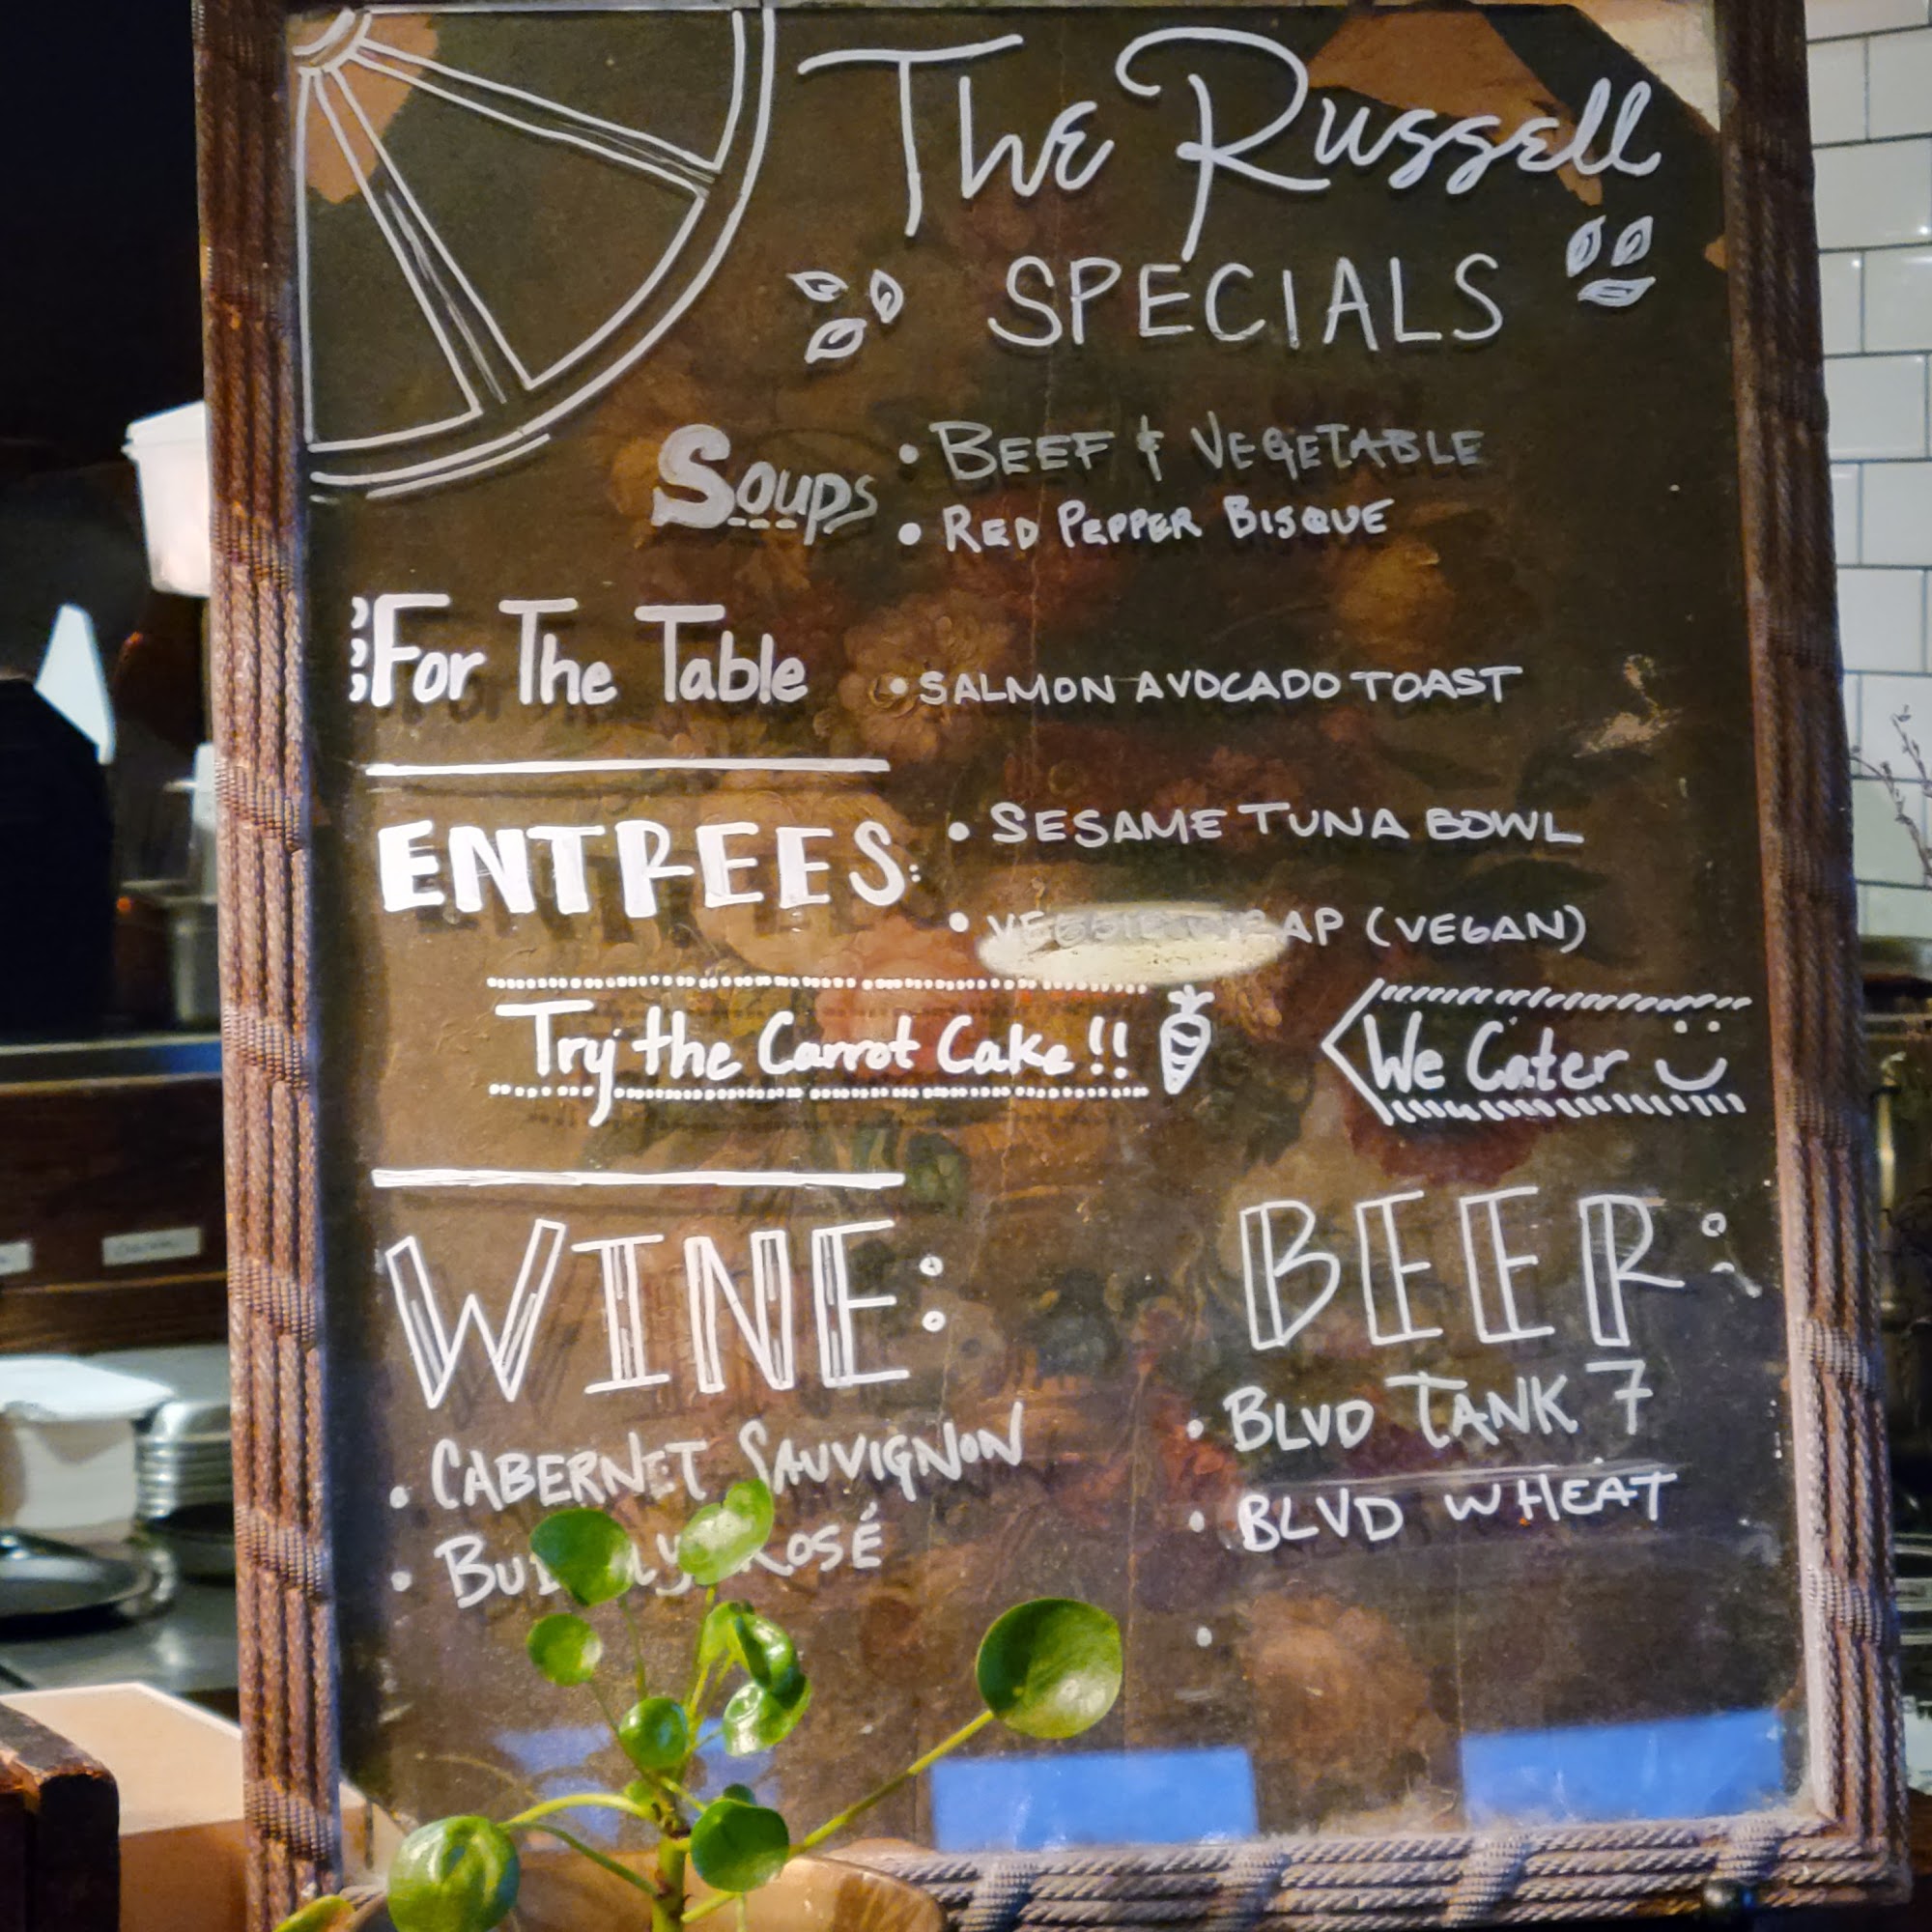 The Russell
SPECIALS
Soups
• BEEF & VEGETABLE
• RED PEPPER BISQUE
For The Table
• SALMON AVOCADO TOAST
ENTREES:
• SESAME TUNA BOWL
• VEGGIE WRAP (VEGAN)
Try the Carrot Cake!!
We Cater
WINE:
• CABERNET SAUVIGNON
• ROSÉ
BEER:
• BLVD TANK 7
• BLVD WHEAT
•